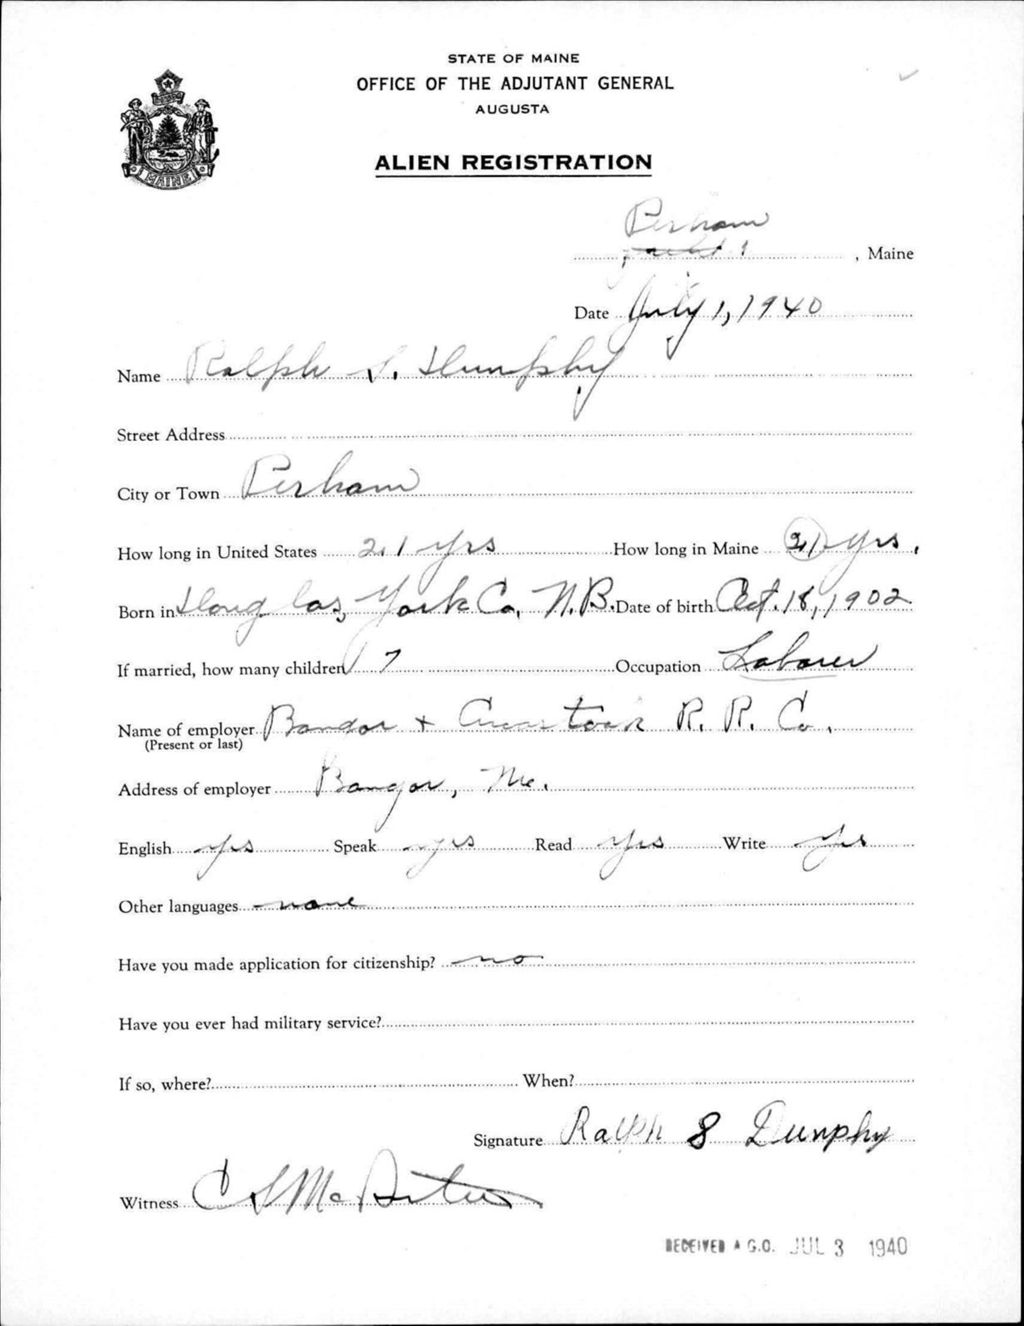 STATE OF MAINE
OFFICE OF THE ADJUTANT GENERAL
AUGUSTA
MAINE
ALIEN REGISTRATION
Perham
, Maine
Date July 1, 1940
Name Ralph S. Dunphy
Street Address
City or Town Perham
How long in United States 21 yrs How long in Maine 21 yrs.
Born in Douglas, York Co, N.B. Date of birth Oct. 18, 1902
If married, how many children 7 Occupation Laborer
Name of employer Bangor + Aroostook R. R. Co.
(Present or last)
Address of employer Bangor, Me.
English yes Speak yes Read yes Write yes
Other languages none
Have you made application for citizenship? no
Have you ever had military service?
If so, where? When?
Signature Ralph S Dunphy
Witness C S
RECEIVED A G.O. JUL 3 1940